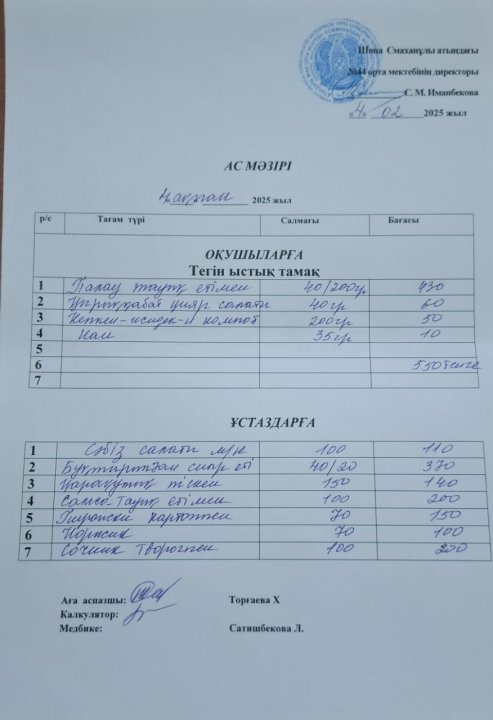 Шона Смаханұлы атындағы
№44 орта мектебінің директоры
С. М. Иманбекова
«4» 02 2025 жыл
АС МӘЗІРІ
4 ақпан 2025 жыл
р/с Тағам түрі Салмағы Бағасы
ОҚУШЫЛАРҒА
Тегін ыстық тамақ
1 Палау тауық етімен 40/200гр 430
2 Қырыққабат қияр салаты 40гр 60
3 Кепкен-жидек-н компот 200гр 50
4 Нан 35гр 10
5
6 550теңге
7
ҰСТАЗДАРҒА
1 Сәбіз салаты 100 110
2 Бұқтырылған сиыр еті 40/20 370
3 Қарақұмық піскен 150 140
4 Самса-тауық етімен 100 200
5 Пирожки картоппен 70 150
6 70 100
7 Сочник творогпен 100 200
Аға аспазшы: Торғаева Х
Калкулятор:
Медбике: Сатишбекова Л.